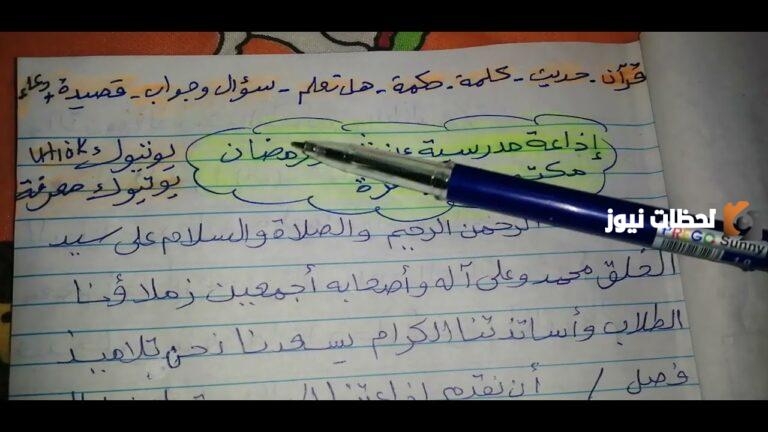 قرآن - حديث - كلمة - حكمة - هل تعلم - سؤال وجواب - قصيدة + دعاء
إذاعة مدرسية عن رمضان
يوتيوك
مكت
يوتيوك معرفة
لحظات نيوز
PRIGO Sunny
الرحمن الرحيم والصلاة والسلام على سيد
الخلق محمد وعلى آله وأصحابه أجمعين زملاؤنا
الطلاب وأساتذتنا الكرام يسعدنا نحن تلاميذ
فصل / أن نقدم إذاعتنا